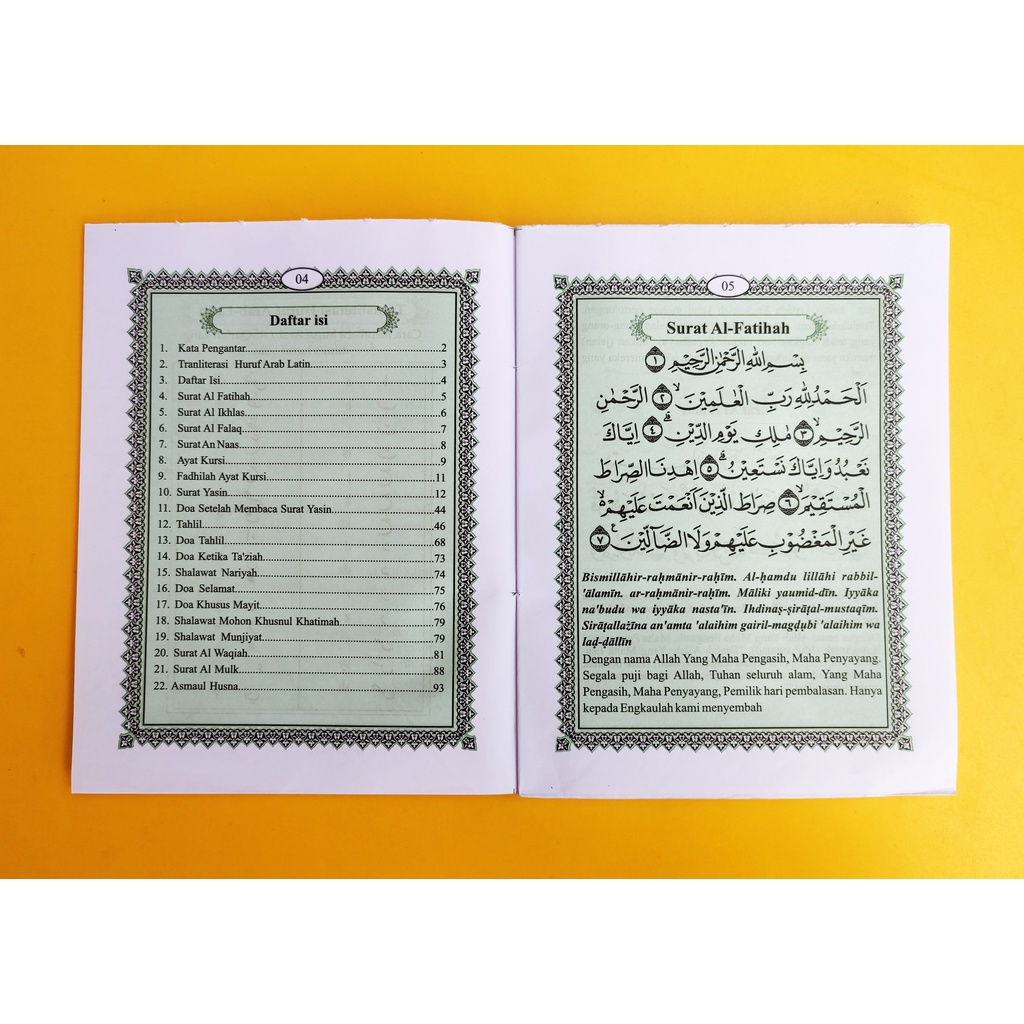 04
Daftar isi
1. Kata Pengantar....2
2. Tranliterasi Huruf Arab Latin....3
3. Daftar Isi....4
4. Surat Al Fatihah....5
5. Surat Al Ikhlas....6
6. Surat Al Falaq....7
7. Surat An Naas....8
8. Ayat Kursi....9
9. Fadhilah Ayat Kursi....11
10. Surat Yasin....12
11. Doa Setelah Membaca Surat Yasin....44
12. Tahlil....46
13. Doa Tahlil....68
14. Doa Ketika Ta'ziah....73
15. Shalawat Nariyah....74
16. Doa Selamat....75
17. Doa Khusus Mayit....76
18. Shalawat Mohon Khusnul Khatimah....79
19. Shalawat Munjiyat....79
20. Surat Al Waqiah....81
21. Surat Al Mulk....88
22. Asmaul Husna....93
05
Surat Al-Fatihah
بِسْمِ اللهِ الرَّحْمٰنِ الرَّحِيْمِ ١
اَلْحَمْدُ لِلّٰهِ رَبِّ الْعٰلَمِيْنَۙ ٢ الرَّحْمٰنِ
الرَّحِيْمِۙ ٣ مٰلِكِ يَوْمِ الدِّيْنِۗ ٤ اِيَّاكَ
نَعْبُدُ وَاِيَّاكَ نَسْتَعِيْنُۗ ٥ اِهْدِنَا الصِّرَاطَ
الْمُسْتَقِيْمَۙ ٦ صِرَاطَ الَّذِيْنَ اَنْعَمْتَ عَلَيْهِمْ ەۙ
غَيْرِ الْمَغْضُوْبِ عَلَيْهِمْ وَلَا الضَّاۤلِّيْنَࣖ ٧
Bismillāhir-raḥmānir-raḥīm. Al-ḥamdu lillāhi rabbil-
'ālamīn. ar-raḥmānir-raḥīm. Māliki yaumid-dīn. Iyyāka
na'budu wa iyyāka nasta'īn. Ihdinaṣ-ṣirāṭal-mustaqīm.
Sirāṭallażīna an'amta 'alaihim gairil-magḍubi 'alaihim wa
laḍ-ḍāllīn
Dengan nama Allah Yang Maha Pengasih, Maha Penyayang.
Segala puji bagi Allah, Tuhan seluruh alam, Yang Maha
Pengasih, Maha Penyayang, Pemilik hari pembalasan. Hanya
kepada Engkaulah kami menyembah